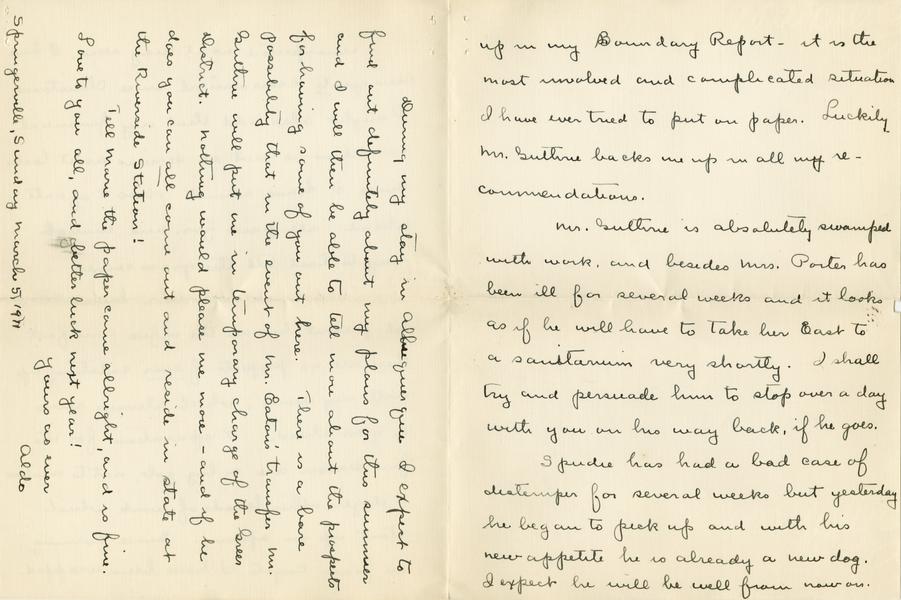 up in my Boundary Report - it is the
most involved and complicated situation
I have ever tried to put on paper. Luckily
Mr. Guthrie backs me up in all my re-
commendations.
Mr. Guthrie is absolutely swamped
with work, and besides Mrs. Porter has
been ill for several weeks and it looks
as if he will have to take her East to
a sanitarium very shortly. I shall
try and persuade him to stop over a day
with you on his way back, if he goes.
Spudie has had a bad case of
distemper for several weeks but yesterday
he began to pick up and with his
new appetite he is already a new dog.
I expect he will be well from now on.
During my stay in Albuquerque I expect to
find out definitely about my plans for this summer
and I will then be able to tell more about the prospects
for having some of you out here. There is a bare
Possibility that in the event of Mr. Eaton's transfer Mr.
Guthrie will put me in temporary charge of the Greer
District. Nothing would please me more - and if he
does you can all come out and reside in state at
the Riverside Station!
Tell Marie the paper came allright, and is fine.
Love to you all, and better luck next year!
Yours as ever
Aldo
Springerville, Sunday March 5, 1911